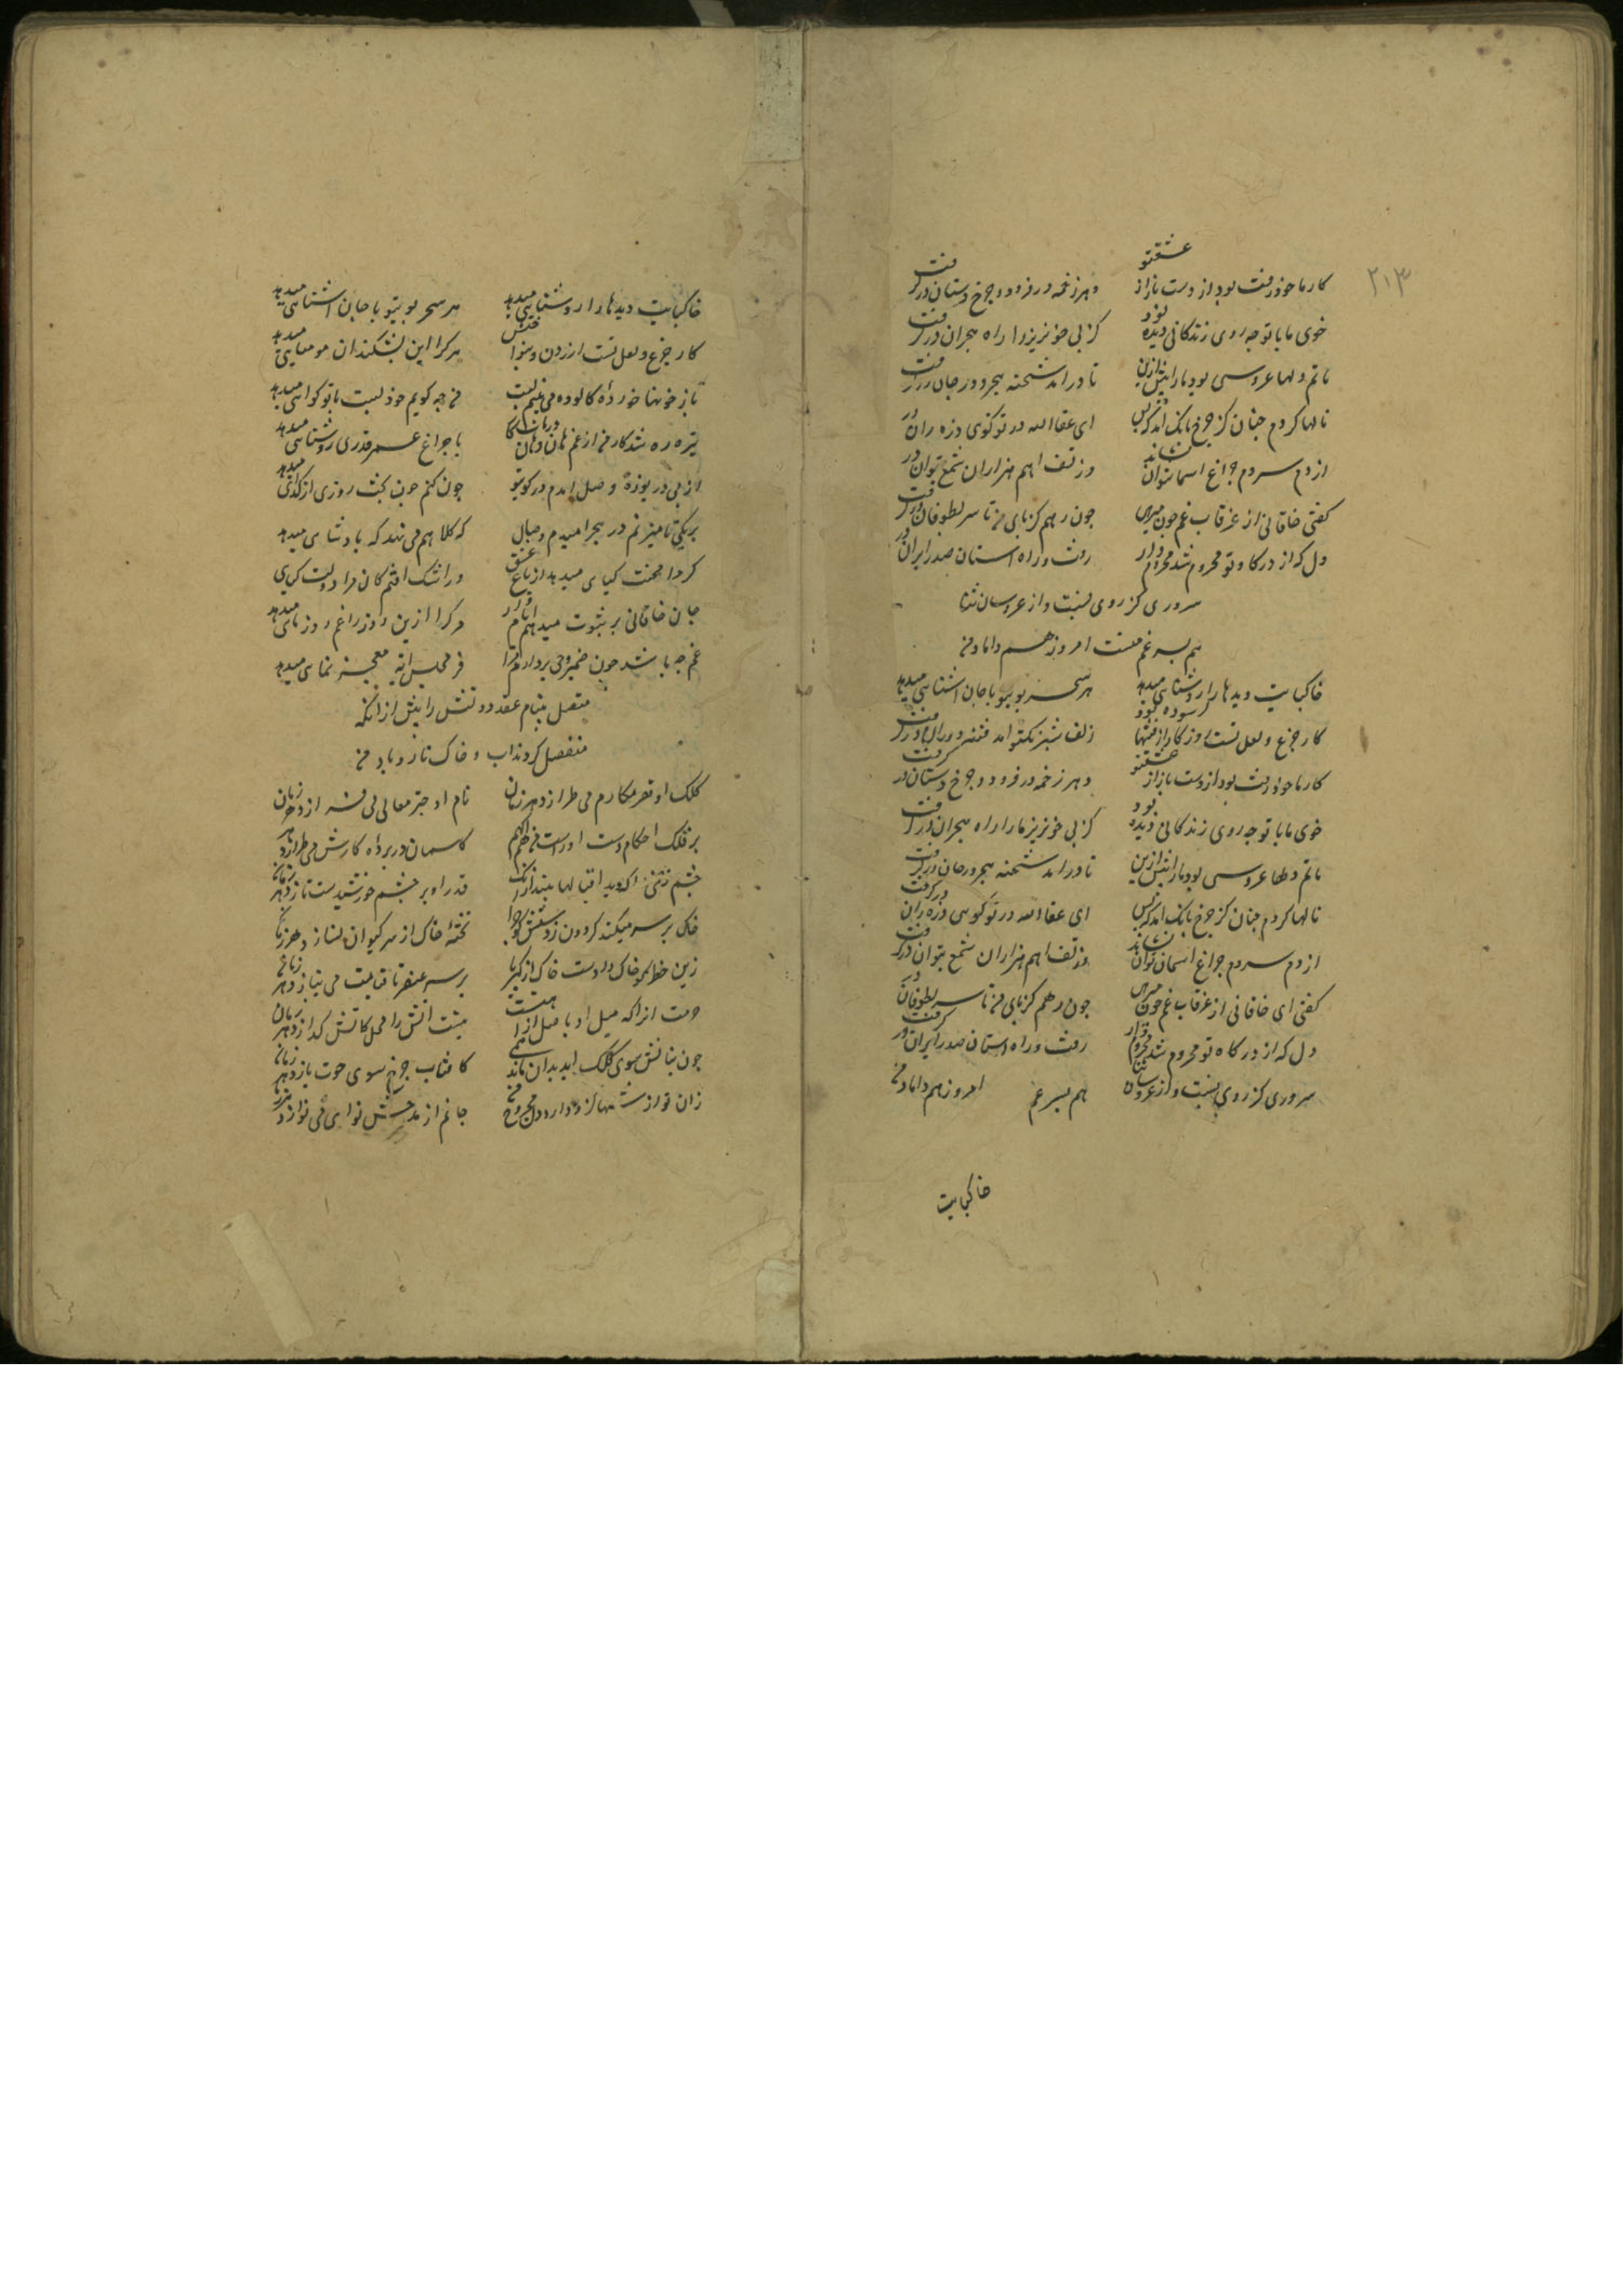 ۲۱۳
کار ما خود رفت بود از دست باز از عشقتو دهر زخمه در فزود و چرخ دستان در گرفت
خوی ما با تو چه روی زندگانی دیده بود کز پی خونریز ما را راه هجران در گرفت
ماتم دلها عروسی بود ما را پیش ازین تا در امد شحنه هجر و در جان در گرفت
نالها کردم چنان کز چرخ بانک امد که بس ای عفاالله در تو گوی ذره ران در
از دم سردم چراغ اسمان نتوان نشاند وز تف اهم هزاران شمع بتوان در
گفتی خاقانی از غرقاب غم چون میرهی چون رهم کز پای من تا سر بطوفان در گرفت
دل که از درگاه تو محروم شد محروم وار رفت و راه استان صدر ایران در
سروری کز روی نسبت و از عروسان ثنا
هم پسر عم منست امروز هم داماد من
خاکپایت دیدها را روشنایی میدهد هر سحر بویتو با جان اشنایی میدهد
کار جزع و لعل تست روزکار از فتنها اسوده بود زلف شبرنکتو امد فتنه دوران در گرفت
کار ما خود رفت بود از دست باز از عشقتو دهر زخمه در فزود و چرخ دستان در گرفت
خوی ما با تو چه روی زندگانی دیده بود کز پی خونریز ما را راه هجران در گرفت
ماتم دلها عروسی بود ما را پیش ازین تا در امد شحنه هجر در جان در گرفت
نالها کردم چنان کز چرخ بانک امد که بس ای عفاالله در تو گویی ذره ران در گرفت
از دم سردم چراغ اسمان نتوان نشاند وز تف اهم هزاران شمع بتوان در گرفت
گفتی ای خاقانی از غرقاب غم چون میرهی چون رهم کز پای من تا سر بطوفان در
دل که از درگاه تو محروم شد محروم وار رفت و راه استان صدر ایران در گرفت
سروری کز روی نسبت و از عروسان ثنا هم پسر عم امروز هم داماد من
خاکپایت
خاکپایت دیدها را روشنایی میدهد هر سحر بویتو با جان اشنایی میدهد
کار جزع و لعل تست ازردن و بنواختن هر کرا این بشکند ان مومیایی میدهد
باز خونها خورده کالوده می بینم لبت من چه گویم خود لبت با تو گوایی میدهد
تیره ره شد کار من از غم هان و هان دریاب کا با چراغ عمر قدری روشنایی میدهد
از پی دریوزه وصل امدم در کویتو چون کنم چون بخت روزی از گدایی میدهد
بر یکی نامیزنم در هجر امیدم وصال که کلاهم می نهد که پادشایی میدهد
کر مرا محنت گیایی میدهد از باغ عشق در اشک افتم کان مرا دولت کیی
جان خاقانی بر شوت میدهم ایام را هر کرا ازین دوز را غم روزهایی میدهد
غم چه باشد چون ضمیر وحی پردازم مرا فر مجلس رتبه معجزنمایی میدهد
متصل بینام عقد دولتش را پیش از انکه
منفصل گردند اب و خاک و نار و باد من
کلک او تصر مکارم می طرازد هر زمان نام او چتر معالی می فرازد هر زمان
بر فلک احکام دست اوراست من حکم کاسمان در پرده کارش می طرازد هر
چشم زخمی اکه دید اقبالها بیند از انک قدر او بر چشم خورشیدست تازد هر زمان
خاک بر سر میکند گردون ز دستش کو چرا تخته خاک از سر کیوان بسازد هر زمان
زین خطر کو خاک را دست خاک از کبریا بر سر عنصر تا قیامت می بنازد هر زمان
دست اتش را محل کاتش گدازد هر زمان
چون بنانش سوی کلک اید بدان ماند همی کافتاب چرخ سوی حوت یازد هر زمان
زان نوازشها کزو دارد دل مجروح من جانم از مدحش نوای می نوازد هر زمان